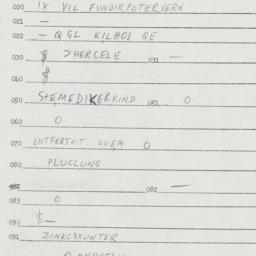 020 IX VIL FUNDIRPOTERVERN
021 —
022 — QGL KILHOI QE
030 $ >HERCELE 031 —
040 $
050 STEMEDIKERKIND 051 O
060 O
070 ENTFERTNIT. CUEM O
080 PLUCLUNG
082 —
083 O
090 $—
091 ZINKC3KUNTER